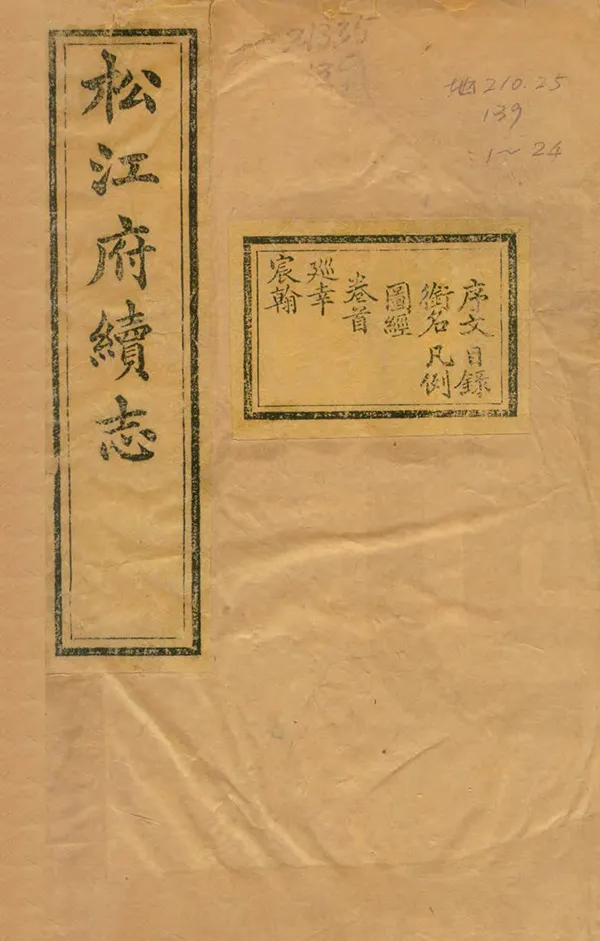 松江府續志
序文目錄
銜名凡例
圖經
卷首
廵幸
宸翰
地210.25
139
1~24